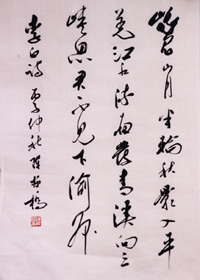 峨眉山月半輪秋影入平
羌江水流夜發清溪向三
峽思君不見下渝州
李白詩 仲秋